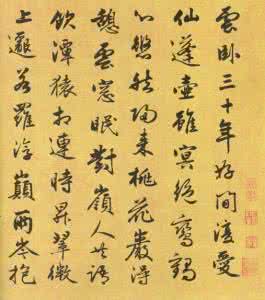 雲卧三十年好閒復愛
仙蓬壺雖冥絕鸞鶴
心悠然歸来桃花巖得
憩雲窓眠對嶺人共語
飲潭猿相連時昇翠微
上邈若羅浮巔兩岑抱